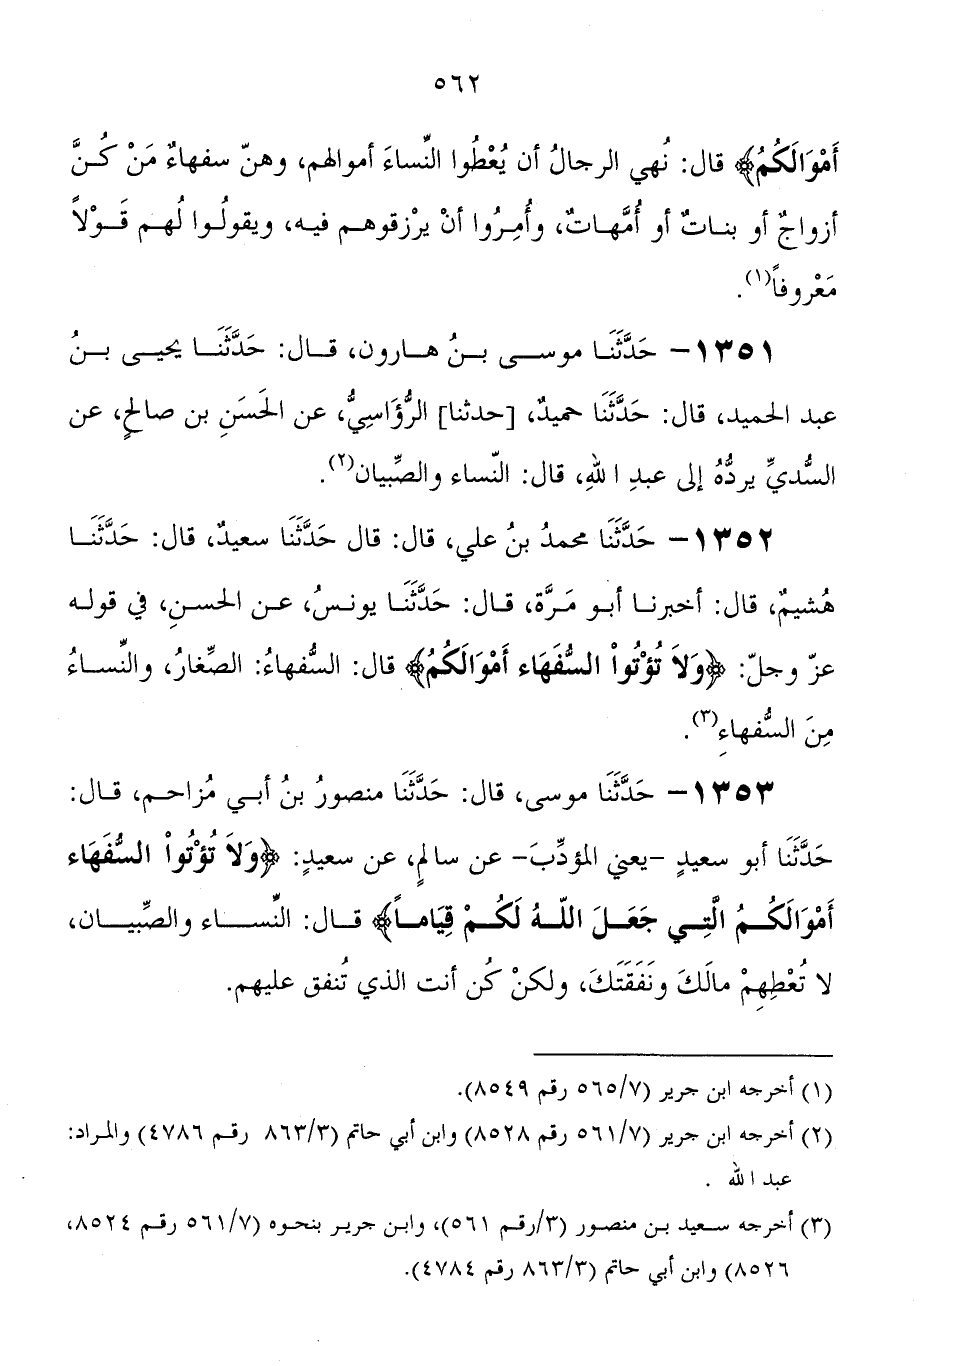 ٥٦٢
أَمْوَالَكُمُ﴾ قال: نُهي الرجالُ أن يُعْطُوا النّساءَ أموالهم، وهنّ سفهاءٌ مَنْ كُنَّ
أزواجٌ أو بناتٌ أو أُمَّهاتٌ، وأُمِرُوا أنْ يرْزقوهم فيه، ويقولُوا لُهم قَولاً
مَعْروفاً(١).
١٣٥١- حَدَّثَنَا موسى بنُ هارون، قال: حَدَّثَنَا يحيى بنُ
عبد الحميد، قال: حَدَّثَنَا حميدٌ، [حدثنا] الرُّؤَاسِيُّ، عن الحَسَنِ بن صالحٍ، عن
السُّديِّ يردُّهُ إلى عبدِ اللهِ، قال: النّساء والصِّبيان(٢).
١٣٥٢- حَدَّثَنَا محمدُ بنُ علي، قال: قال حَدَّثَنَا سعيدٌ، قال: حَدَّثَنَا
هُشيمٌ، قال: أخبرنا أبو مَرَّة، قال: حَدَّثَنَا يونسُ، عن الحسنِ، في قوله
عزّ وجلّ: ﴿وَلاَ تُؤْتُواْ السُّفَهَاء أَمْوَالَكُمُ﴾ قال: السُّفهاءُ: الصِّغارُ، والنِّساءُ
مِنَ السُّفهاءِ(٣).
١٣٥٣- حَدَّثَنَا موسى، قال: حَدَّثَنَا منصورُ بنُ أبي مُزاحم، قال:
حَدَّثَنَا أبو سعيدٍ -يعني المؤدِّبَ- عن سالمٍ، عن سعيدٍ: ﴿وَلاَ تُؤْتُواْ السُّفَهَاء
أَمْوَالَكُمُ الَّتِي جَعَلَ اللّهُ لَكُمْ قِيَاماً﴾ قال: النِّساء والصِّبيان،
لا تُعْطِهِمْ مالَكَ ونَفَقَتَكَ، ولكنْ كُن أنت الذي تُنفق عليهم.
(١) أخرجه ابن جرير (٥٦٥/٧ رقم ٨٥٤٩).
(٢) أخرجه ابن جرير (٥٦١/٧ رقم ٨٥٢٨) وابن أبي حاتم (٨٦٣/٣ رقم ٤٧٨٦) والمراد:
عبد الله .
(٣) أخرجه سعيد بن منصور (٣/رقم ٥٦١)، وابن جرير بنحوه (٥٦١/٧ رقم ٨٥٢٤،
٨٥٢٦) وابن أبي حاتم (٨٦٣/٣ رقم ٤٧٨٤).